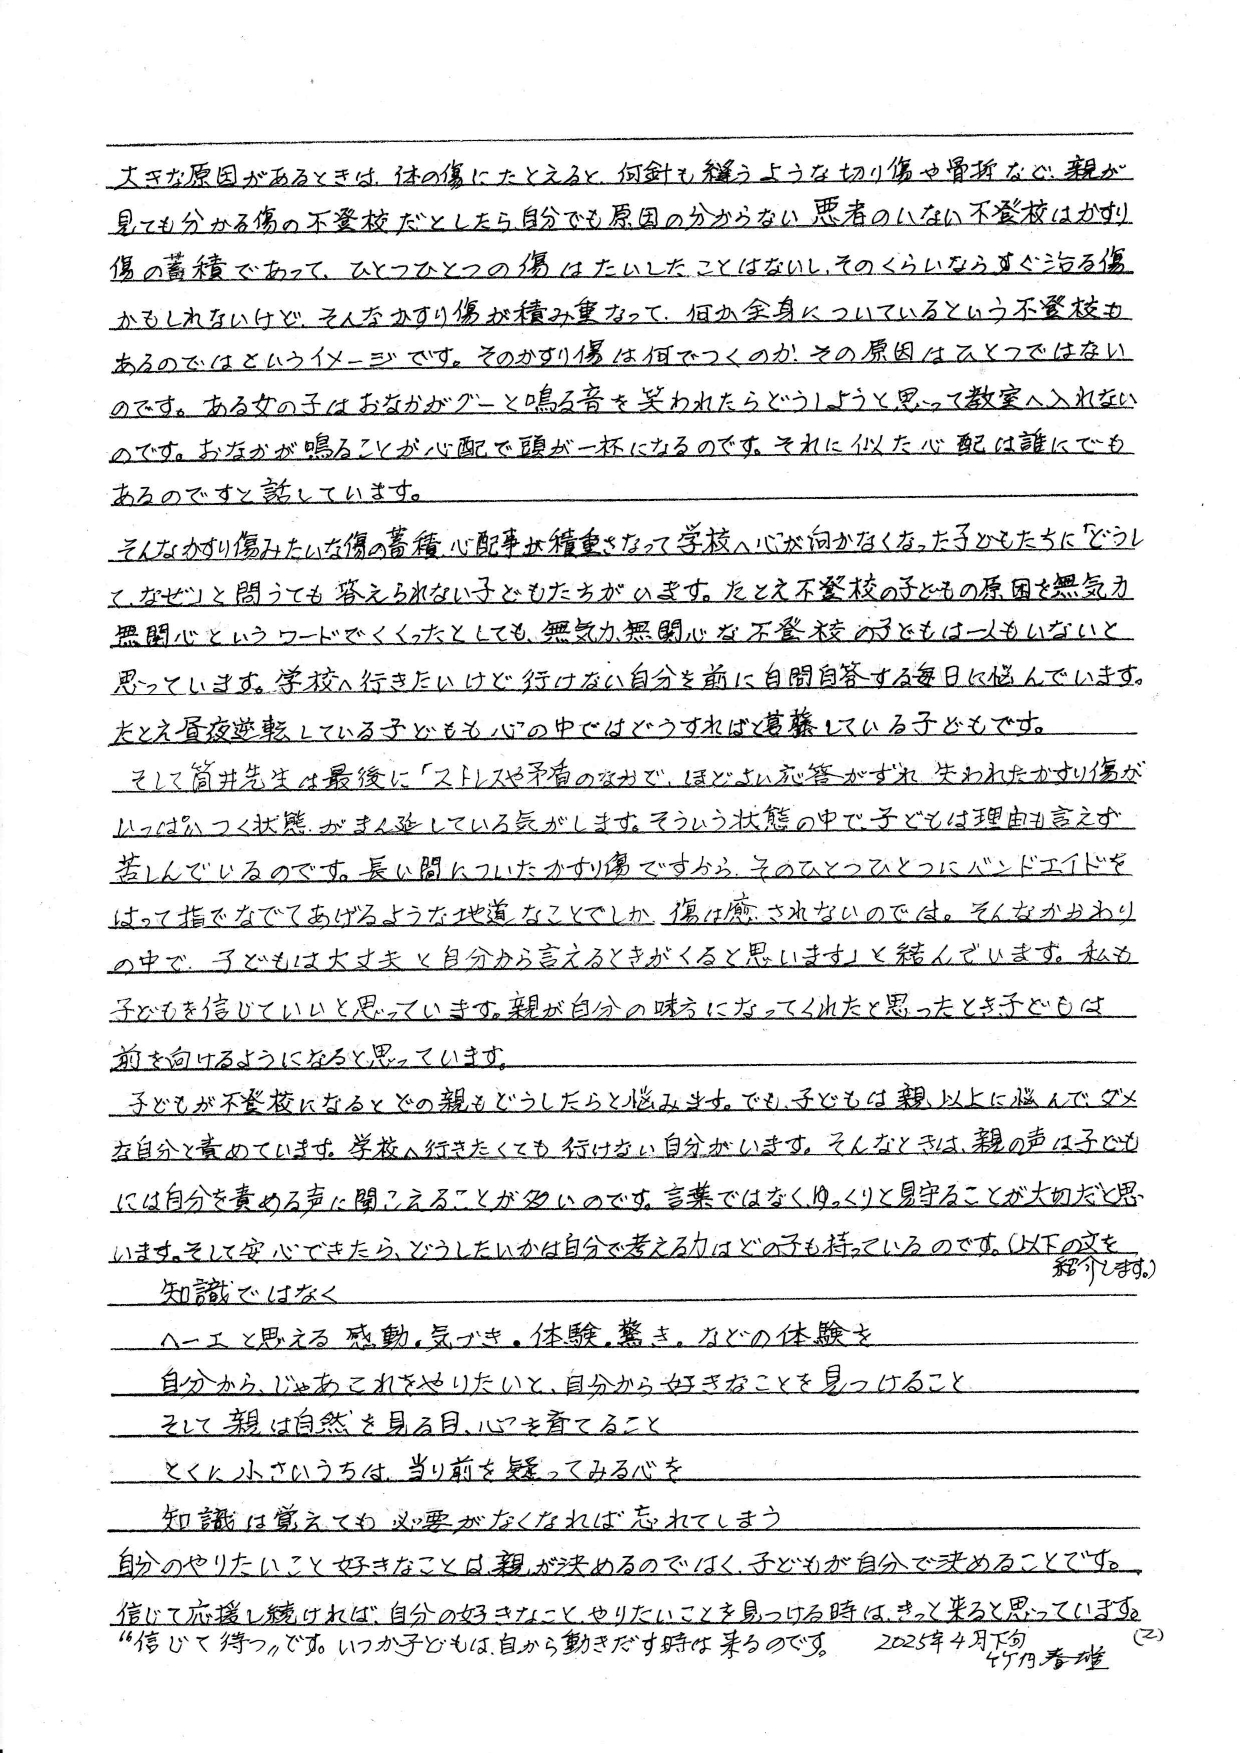 大きな原因があるときは、体の傷にたとえると、何針も縫うような切り傷や骨折など、親が
見ても分かる傷の不登校だとしたら、自分でも原因の分からない悪者のいない不登校はかすり
傷の蓄積であって、ひとつひとつの傷はたいしたことはないし、そのくらいならすぐ治る傷
かもしれないけど、そんなかすり傷が積み重なって、何か全身についているという不登校も
あるのではというイメージです。そのかすり傷は何でつくのか、その原因はひとつではない
のです。ある女の子はおなかがグーと鳴る音を笑われたらどうしようと思って教室へ入れない
のです。おなかが鳴ることが心配で頭が一杯になるのです。それに似た心配は誰にでも
あるのですと話しています。
そんなかすり傷みたいな傷の蓄積、心配事が積重さなって学校へ心が向かなくなった子どもたちに「どうし
て、なぜ」と問うても答えられない子どもたちがいます。たとえ不登校の子どもの原因を無気力
無関心というワードでくくったとしても、無気力、無関心な不登校の子どもは一人もいないと
思っています。学校へ行きたいけど行けない自分を前に自問自答する毎日に悩んでいます。
たとえ昼夜逆転している子どもも心の中ではどうすればと葛藤している子どもです。
そして筒井先生は最後に「ストレスや矛盾のなかで、ほどよい応答がずれ、失われたかすり傷が
いっぱいつく状態がまん延している気がします。そういう状態の中で、子どもは理由も言えず
苦しんでいるのです。長い間についたかすり傷ですから、そのひとつひとつにバンドエイドを
はって指でなでてあげるような地道なことでしか、傷は癒されないのでは。そんなかかわり
の中で、子どもは大丈夫と自分から言えるときがくると思います」と結んでいます。私も
子どもを信じていいと思っています。親が自分の味方になってくれたと思ったとき子どもは
前を向けるようになると思っています。
子どもが不登校になるとどの親もどうしたらと悩みます。でも、子どもは親以上に悩んで、ダメ
な自分と責めています。学校へ行きたくても行けない自分がいます。そんなときは、親の声は子ども
には自分を責める声に聞こえることが多いのです。言葉ではなく、ゆっくりと見守ることが大切だと思
います。そして安心できたら、どうしたいかは自分で考える力はどの子も持っているのです。（以下の文を
紹介します。）
知識ではなく
ヘーエと思える感動。気づき。体験。驚き。などの体験を
自分から、じゃあこれをやりたいと、自分から好きなことを見つけること
そして親は自然を見る目、心を育てること
とくに小さいうちは、当り前を疑ってみる心を
知識は覚えても必要がなくなれば忘れてしまう
自分のやりたいこと好きなことは、親が決めるのではく、子どもが自分で決めることです。
信じて応援し続ければ、自分の好きなこと、やりたいことを見つける時は、きっと来ると思っています。
“信じて待つ〟です。いつか子どもは、自から動きだす時は来るのです。 2025年4月下旬 (2)
春雄